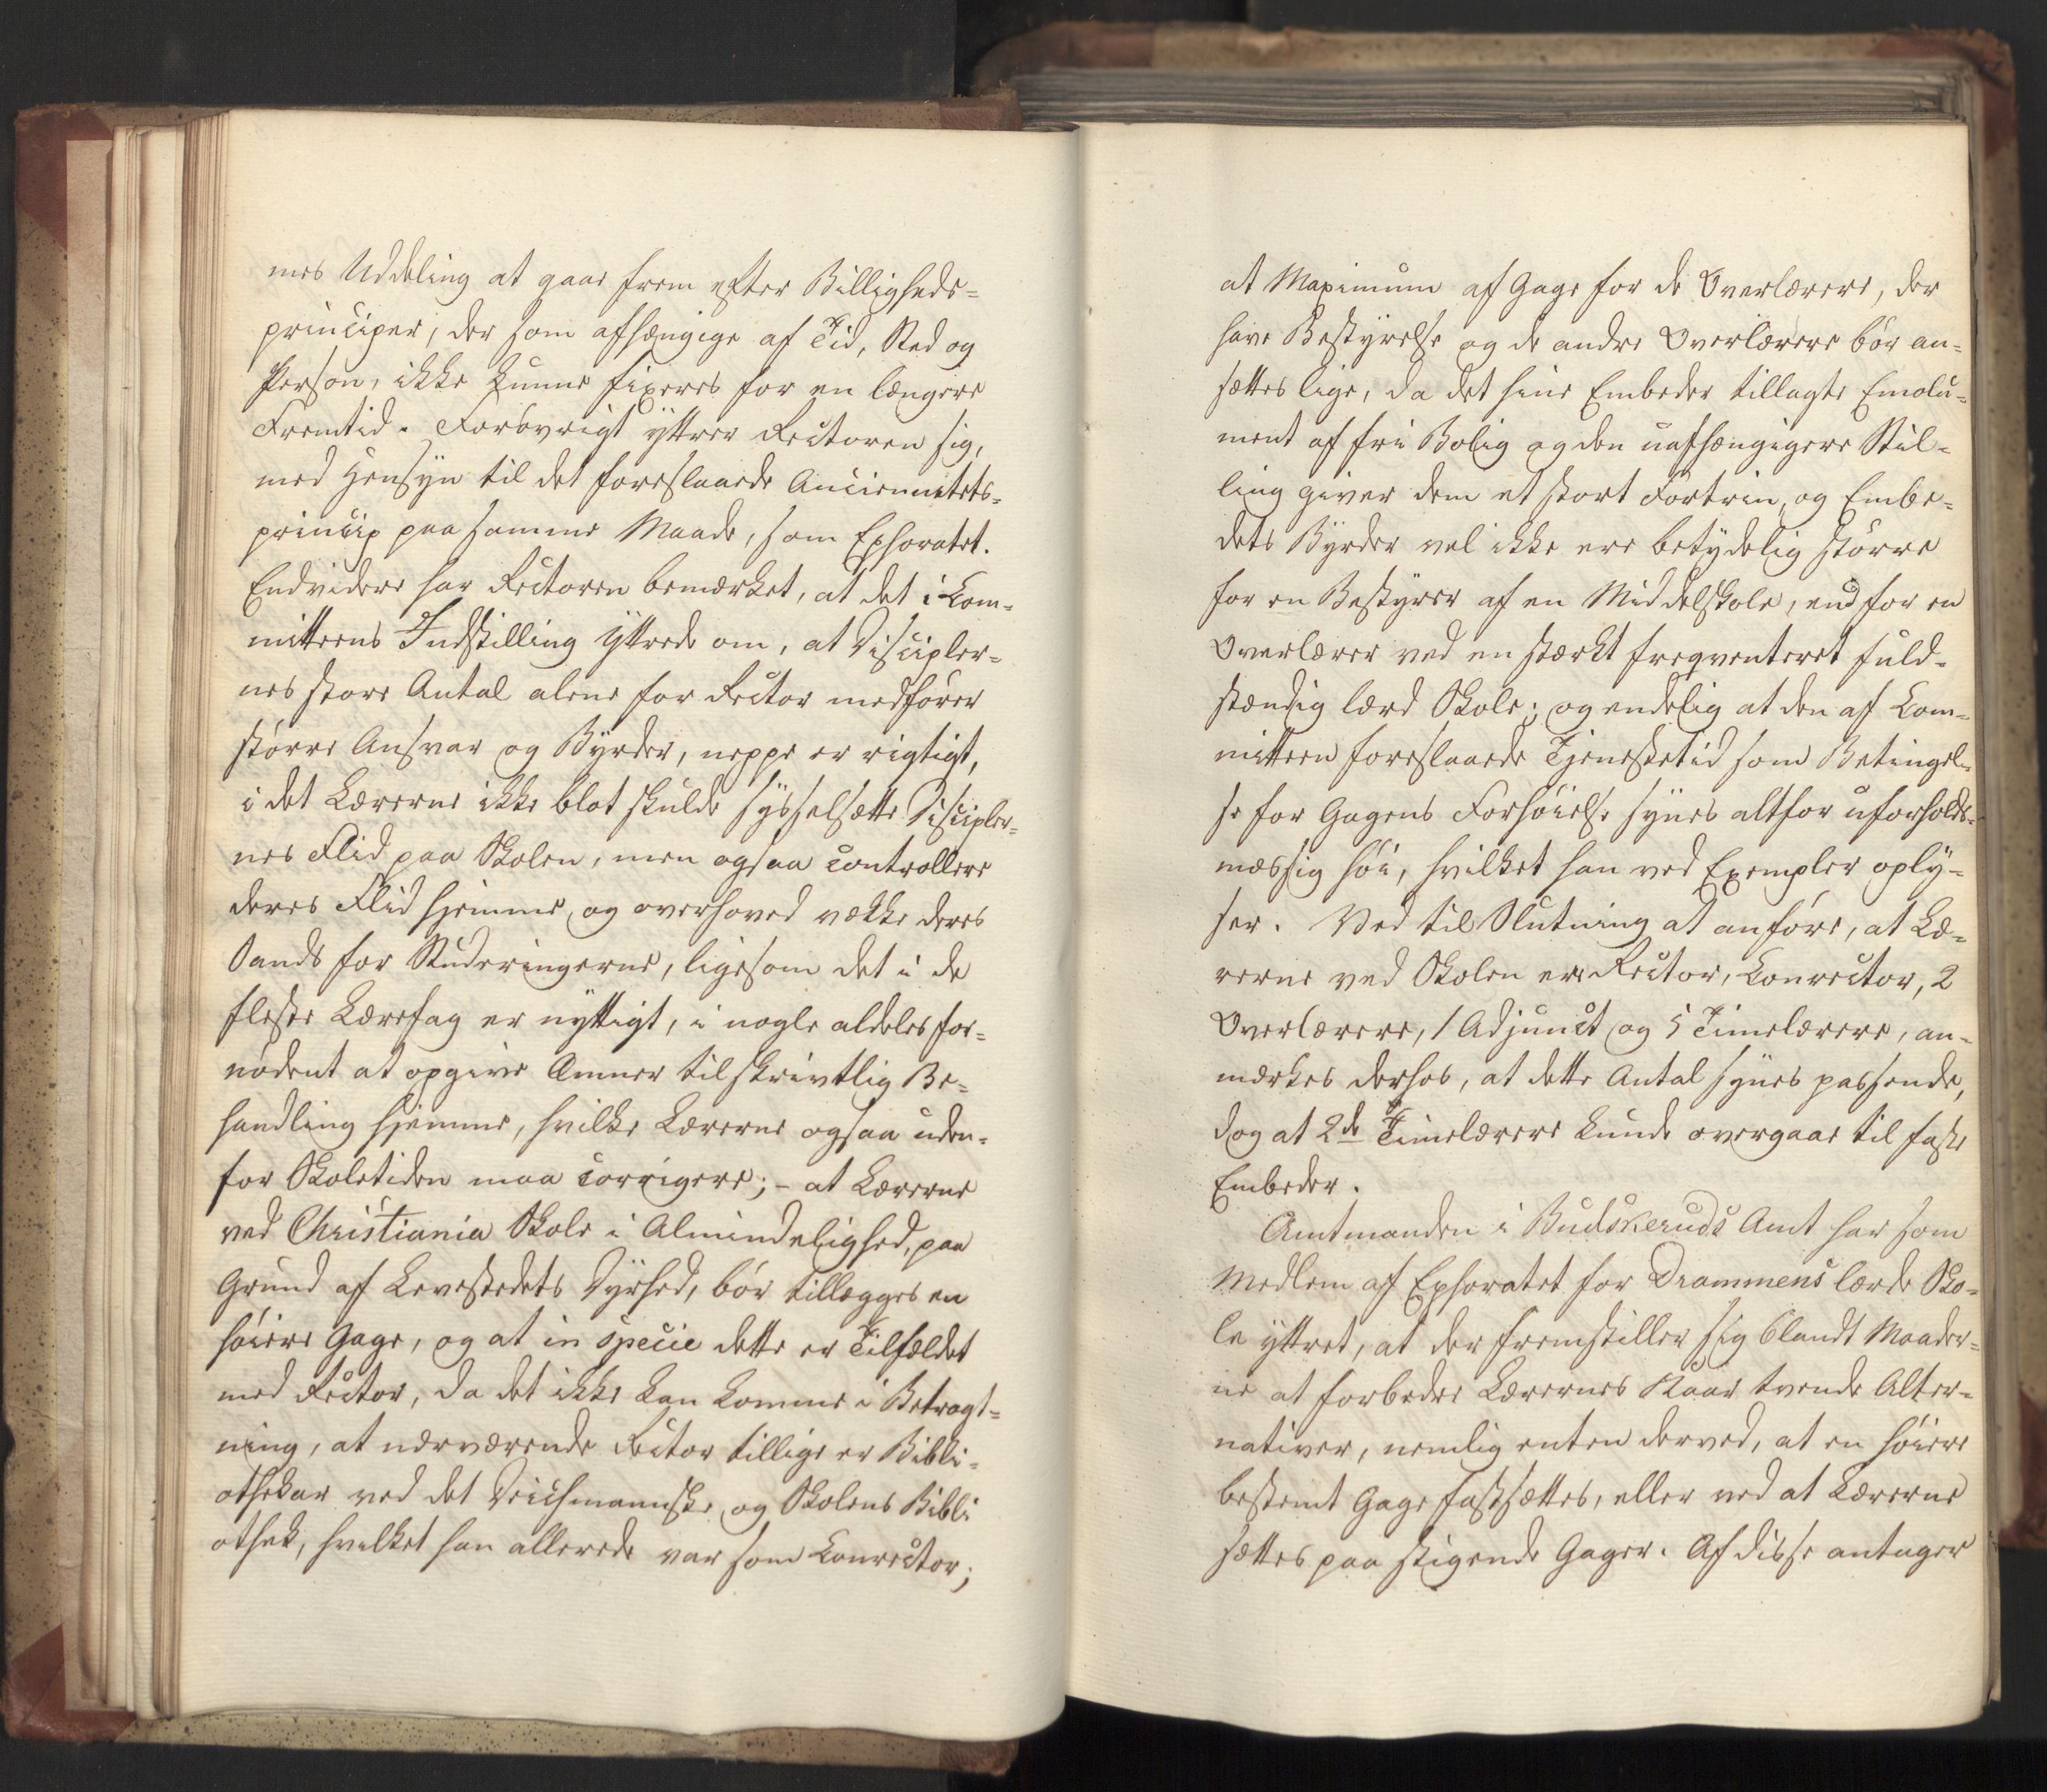 nes Uddeling at gaae frem efter Billigheds-
principer, der som afhængige af Tid, Sted og
Person, ikke kunne fixeres for en længere
Fremtid. Forøvrigt yttrer Rectoren sig,
med Hensyn til det foreslaaede Anciennitets-
princip paa samme Maade, som Ephoratet.
Endvidere har Rectoren bemærket, at det i Com-
mitteens Indstilling yttrede om, at Discipler-
nes store Antal alene for Rector medfører
større Ansvar og Byrder, neppe er rigtigt,
i det Lærerne ikke blot skulde sysselsætte Discipler-
nes Flid paa Skolen, men ogsaa controllere
deres Flid hjemme, og overhoved vække deres
Sands for Studeringerne, ligesom det i de
fleste Lærefag er nyttigt, i nogle aldeles for-
nødent at opgive Emner til skrivtlig Be-
handling hjemme, hvilke Lærerne ogsaa uden-
for Skoletiden maa corrigere; - at Lærerne
ved Christiania Skole i Almindelighed, paa
Grund af Levestedets Dyrhed, bør tillægges en
høiere Gage, og at in specie dette er Tilfældet
med Rector, da det ikke kan komme i Betragt-
ning, at nærværende Rector tillige er Bibli-
othekar ved det Deichmannske og Skolens Bibli
othek, hvilket han allerede var som Conrector;
at Maximum af Gage for de Overlærere, der
have Bestyrelse og de andre Overlærere bør an-
sættes lige, da det hine Embeder tillagte Emolu-
ment af fri Bolig og den uafhængigere Stil-
ling giver dem et stort Fortrin, og Embe-
dets Byrder vel ikke ere betydelig større
for en Bestyrer af en Middelskole, end for en
Overlærer ved en stærkt freqventeret fuld-
stændig lærd Skole; og endelig at den af Com-
mitteen foreslaaede Tjenestetid som Betingel-
se for Gagens Forhøielse synes altfor uforholds-
mæssig høi, hvilket han ved Exempler oply-
ser. Ved til Slutning at anføre, at Læ-
rerne ved Skolen ere Rector, Conrector, 2
Overlærere, 1 Adjunct og 5 Timelærere, an-
mærkes derhos, at dette Antal synes passende,
dog at 2de Timelærere kunde overgaae til faste
Embeder.
Amtmanden i Budskeruds Amt har som
Medlem af Ephoratet for Drammens lærde Sko-
le yttret, at der fremstiller sig blandt Maader-
ne at forbedre Lærernes Kaar tvende Alter-
nativer, nemlig enten derved, at en høiere
bestemt Gage fastsættes, eller ved at Lærerne
sættes paa stigende Gager. Af disse antager